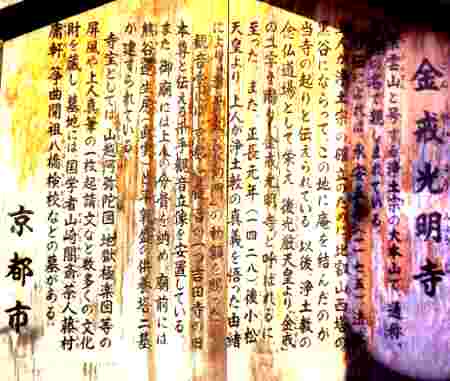 金戒光明寺
雲山と号する浄土宗の大本山で、通称、
の名で親しまれている。
承安五年(一一七五)法
上人が浄土宗の確立のために比叡山西塔の
黒谷にならって、この地に庵を結んだのが
当寺の起りと伝えられている。以後、浄土教の
念仏道場として栄え、後光厳天皇より「金戒」
の二字を賜り金戒光明寺と呼ばれるに
至った。また、正長元年(一四二八)後小松
天皇より、上人が浄土教の真義を悟った由緒
により の勅額を賜った。
観音 の一つ吉田寺の旧
本尊と伝える千手観音立像を安置している。
また、御廟には上人の分骨を納め、廟前には
熊谷蓮生房(直実)と平敦盛の供養塔二基
が建てられている。
寺宝としては、山越阿弥陀図・地獄極楽図等の
屏風や上人真筆の一枚起請文など数多くの文化
財を蔵し、墓地には国学者山崎闇斎、茶人藤村
庸軒、箏曲開祖八橋検校などの墓がある。
京都市